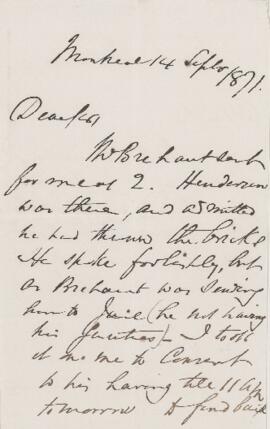 Montreal 14 Septr 1871.
Dear Sir
Mr Brehaut sent
for me at 2. Henderson
was there, and admitted
he had thrown the bricks
He spoke foolishly, but
as Brehaut was sending
him to Jail (he not having
his Sureties) – I took
it on me to Consent
to his having till 11 AM
tomorrow to find bail